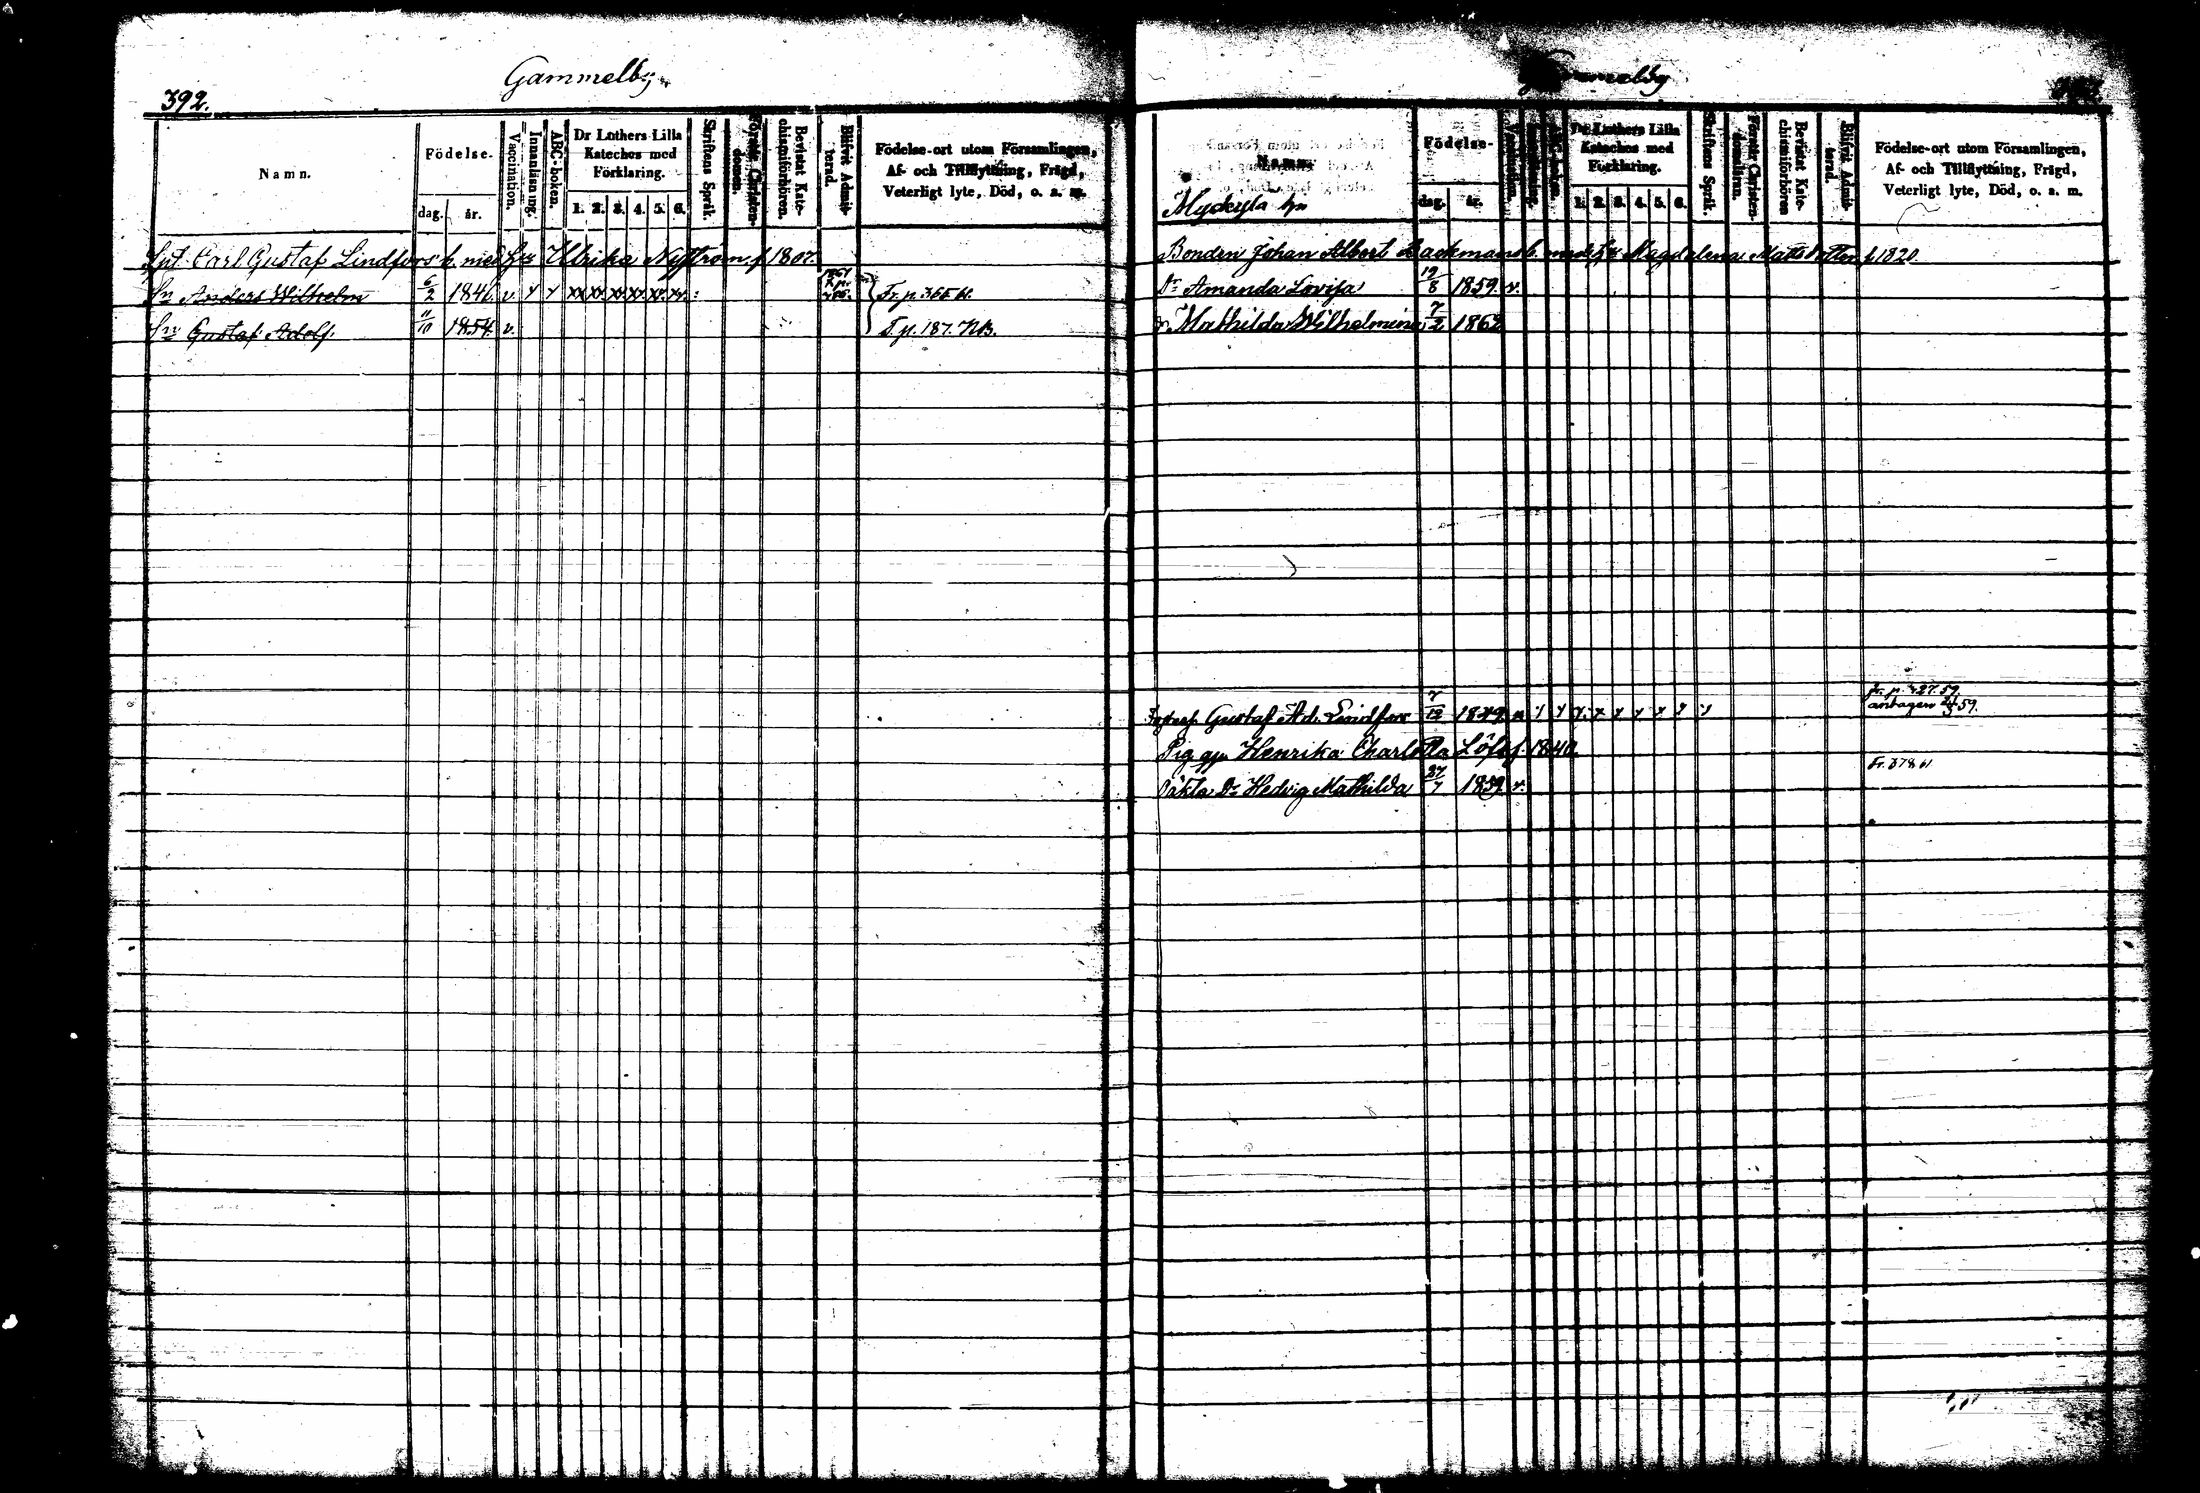 392.
Gammelby.
Namn.
Födelse.
dag. år.
Vaccination.
Innanläsning.
ABC-boken.
Dr Luthers Lilla
Kateches med
Förklaring.
1. 2. 3. 4. 5. 6.
Skriftens Språk.
Förstår Christen-
domen.
Bevistat Kate-
chismiförhören.
Blifvit Admit-
terad.
Födelse-ort utom Församlingen,
Af- och Tillflyttning, Frägd,
Veterligt lyte, Död, o. s. m.
Carl Gustaf Lindfors h. med Ulrika Nyström f. 1807.
Sn Anders Wilhelm 6/2 1846. v. Fr. p. 366 61.
Sn Gustaf Adolf. 11/10 1854. v. T. p. 187. NB.
Gammelby
Namn.
Myckyla
Födelse-
dag. år.
Vaccination.
ABC-boken.
Dr Luthers Lilla
Kateches med
Förklaring.
1. 2. 3. 4. 5. 6.
Skriftens Språk.
Förstår Christen-
domsläran.
Bevistat Kate-
chismiförhören
Blifvit Admit-
terad.
Födelse-ort utom Församlingen,
Af- och Tillflyttning, Frägd,
Veterligt lyte, Död, o. s. m.
Bonden Johan Albert Backmans b. med Magdalena Mattsdotter f. 1820
Dr Amanda Lovisa 19/8 1859 v.
Mathilda Wilhelmina 7/2 1862
Gustaf Ad. Lindfors 1849 fr. p. 427. 59. antagen 59.
Pig. Henrika Charlotta Löf f. 1840
Oäkta Dr Hedvig Mathilda 27/7 1859 v. Fr. 378 61